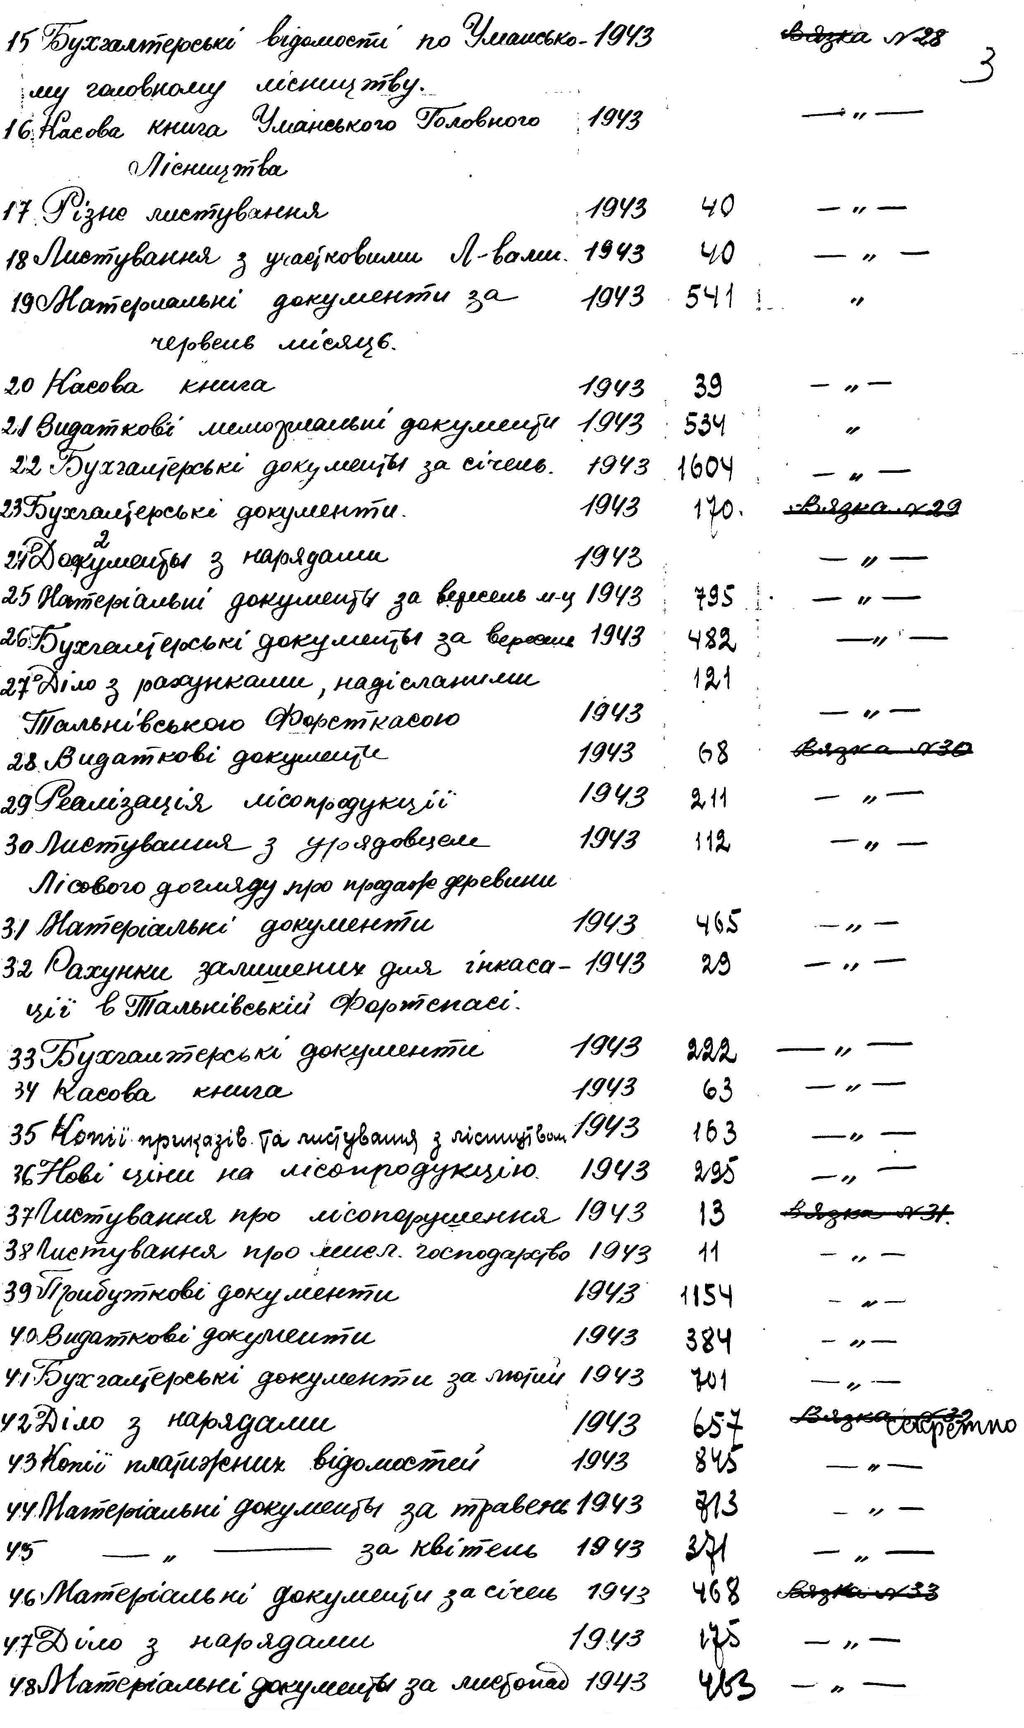 15 Бухгалтерські відомості по Умансько- 1943 Вязка №28
3
му головному лісництву.
16. Касова книга Уманського Головного 1943 — " —
Лісництва
17. Різне листування 1943 40 — " —
18 Листування з участковими Л-вами. 1943 40 — " —
19 Материальні документи за 1943 541 "
червень місяць.
20 Касова книга 1943 39 — " —
21 Видаткові мемориальні документи 1943 534 "
22 Бухгалтерські документы за січень. 1943 1604 — " —
23 Бухгалтерські документи. 1943 170. Вязка №29
24 Документы з нарядами 1943 — " —
25 Матеріальні документы за вересень м-ц 1943 795 — " —
26. Бухгалтерські документы за вересень 1943 482 — " —
27 Діло з рахунками, надісланими 121
Тальнівською Форсткасою 1943 — " —
28. Видаткові документи 1943 68 Вязка №30
29 Реалізація лісопродукції 1943 211 — " —
30 Листування з урядовцем 1943 112 — " —
Лісового догляду про продаж деревини
31 Матеріальні документи 1943 465 — " —
32 Рахунки залишених для інкаса- 1943 29 — " —
ції в Тальнівській Фортспасі.
33 Бухгалтерські документи 1943 222 — " —
34 Касова книга 1943 63 — " —
35 Копії приказів та листування з лісництвом 1943 163 — " —
36 Нові ціни на лісопродукцію. 1943 295 — " —
37 Листування про лісопорушення 1943 13 Вязка №31.
38 Листування про мисл. господарство 1943 11 — " —
39 Прибуткові документи 1943 1154 — " —
40. Видаткові документи 1943 384 — " —
41 Бухгалтерські документи за лютий 1943 701 — " —
42 Діло з нарядами 1943 657 Вязка №32 секретно
43 Копії платіжних відомостей 1943 845 — " —
44 Матеріальні документы за травень 1943 713 — " —
45 — " — за квітень 1943 371 — " —
46 Матеріальні документи за січень 1943 468 Вязка №33
47 Діло з нарядами 1943 175 — " —
48 Матеріальні документы за листопад 1943 463 — " —